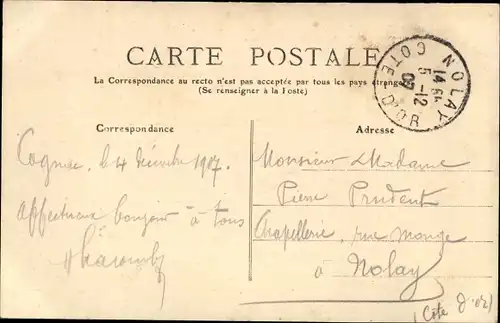 CARTE POSTALE
La Correspondance au recto n'est pas acceptée par tous les pays étrangers
(Se renseigner à la Poste)
NOLAY
14 5-12 07
COTE D'OR
Correspondance
Adresse
Cognac, le 4 décembre 1907.
Affectueux bonjour à tous
Monsieur Madame
Pierre Prudent
Chapellerie, rue Monge
à Nolay
(Côte d'or)